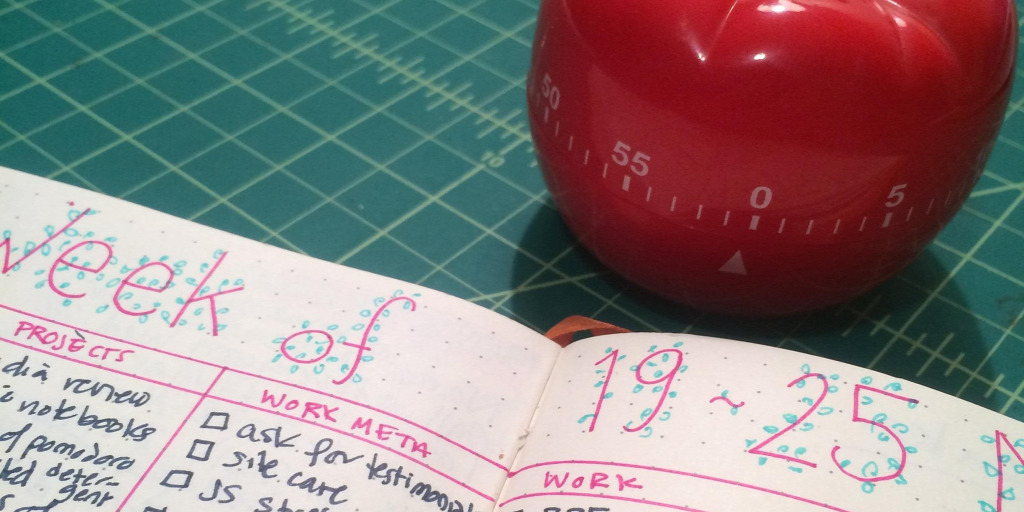 50 55 0 5
10
Week of
19 ~ 25
PROJECTS
review
notebooks
of pomodoro
WORK META
☐ ask for testimonials
☐ site care
☐ JS
WORK